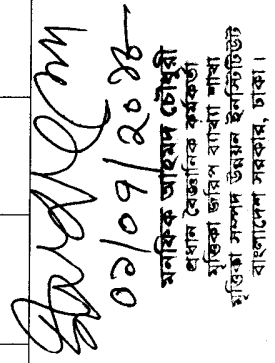 মনফিক আহমদ চৌধুরী
প্রধান বৈজ্ঞানিক কর্মকর্তা
মৃত্তিকা জরিপ ব্যাখ্যা শাখা
মৃত্তিকা সম্পদ উন্নয়ন ইনস্টিটিউট
বাংলাদেশ সরকার, ঢাকা।